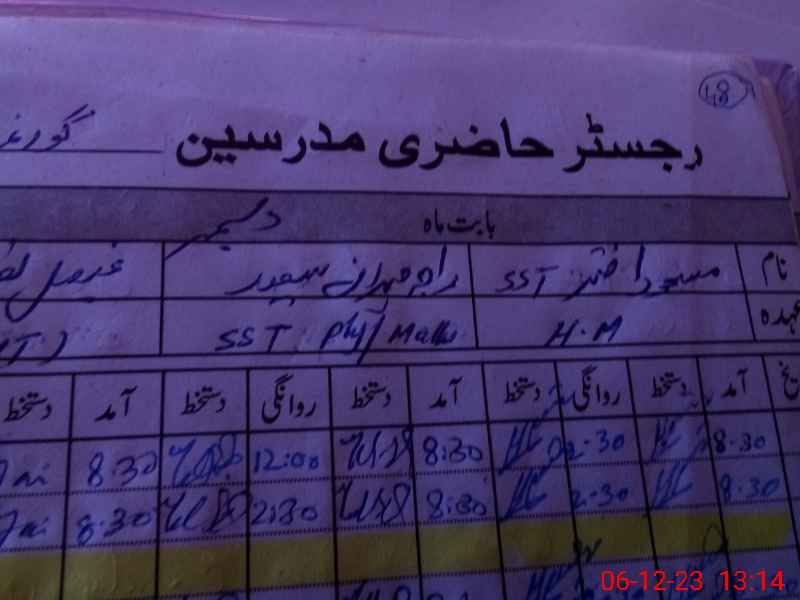 48
رجسٹر حاضری مدرسین
بابت ماہ دسمبر
نام مسعود اختر SST راجہ مہران سعید فیصل
عہدہ H.M SST Phy/Maths
آمد دستخط روانگی دستخط آمد دستخط روانگی دستخط آمد دستخط
8:30 2-30 8:30 12:00 8:30
8:30 2-30 8:30 2:30 8:30
06-12-23 13:14